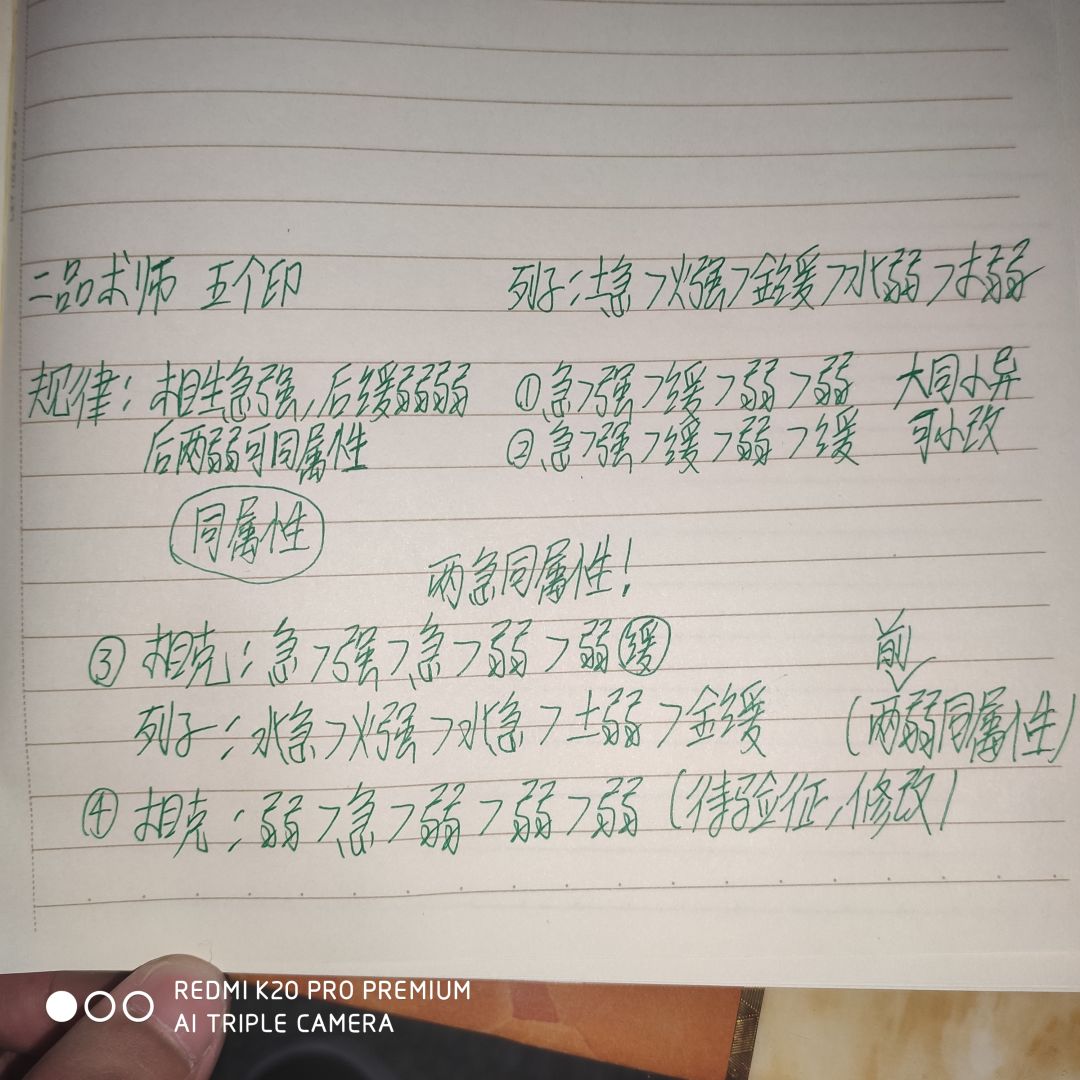 二品术师 五个印 列子:土急>火强>金缓>水弱>木弱
规律:相生急强,后缓弱弱弱 ①急>强>缓>弱>弱 大同小异
后两弱可同属性 ②急>强>缓>弱>缓 可小改
同属性
两急同属性!
③相克:急>强>急>弱>弱 缓 前
列子:水急>火强>水急>土弱>金缓 (两弱同属性)
④相克:弱>急>弱>弱>弱(待验证,修改)
REDMI K20 PRO PREMIUM
AI TRIPLE CAMERA